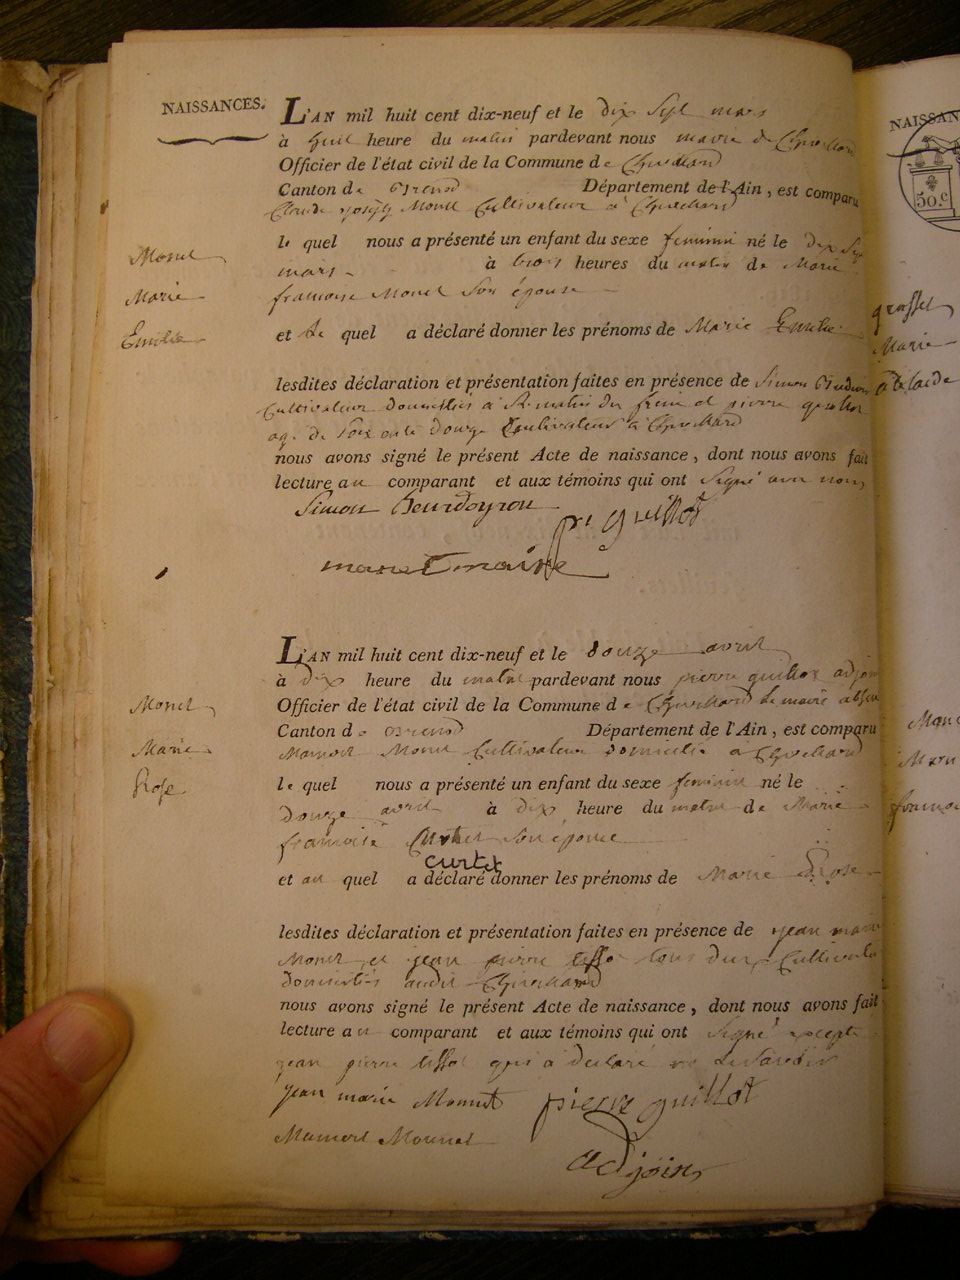 NAISSANCES.
L'AN mil huit cent dix-neuf et le dix sept mars
à huit heure du matin pardevant nous maire de Chevillard
Officier de l'état civil de la Commune de Chevillard
Canton de Brenod Département de l'Ain, est comparu
Claude joseph Monet Cultivateur a Chevillard
le quel nous a présenté un enfant du sexe feminin né le dix sept
mars à trois heures du matin de Marie
francoise Monet Son épouse
et le quel a déclaré donner les prénoms de Marie Emilie
Monet
Marie
Emilie
lesdites déclaration et présentation faites en présence de Simon
Cultivateur domicilié a St. martin du frene et pierre guillot
agé de soixante douze Cultivateur a Chevillard
nous avons signé le présent Acte de naissance, dont nous avons fait
lecture au comparant et aux témoins qui ont Signé avec nous
Simon Beurdoyron
pr guillot
monet maire
L'AN mil huit cent dix-neuf et le douze avril
à dix heure du matin pardevant nous pierre guillot adjoin
Officier de l'état civil de la Commune de Chevillard le maire absen
Canton de Brenod Département de l'Ain, est comparu
Mamert Monet Cultivateur domicilié a Chevillard
le quel nous a présenté un enfant du sexe feminin né le
douze avril à dix heure du matin de Marie
francoise Curtet son épouse
curtet
et au quel a déclaré donner les prénoms de Marie Rose
Monet
Marie
Rose
lesdites déclaration et présentation faites en présence de jean marie
Monet et jean pierre tissot tous deux Cultivate
domiciliés audit Chevillard
nous avons signé le présent Acte de naissance, dont nous avons fait
lecture au comparant et aux témoins qui ont Signé excepté
jean pierre tissot qui a déclaré ne le savoir
jean marie Monnet pierre guillot
Mamert Monnet
adjoin
NAISSAN
50.c
grosset
Marie
adelaide